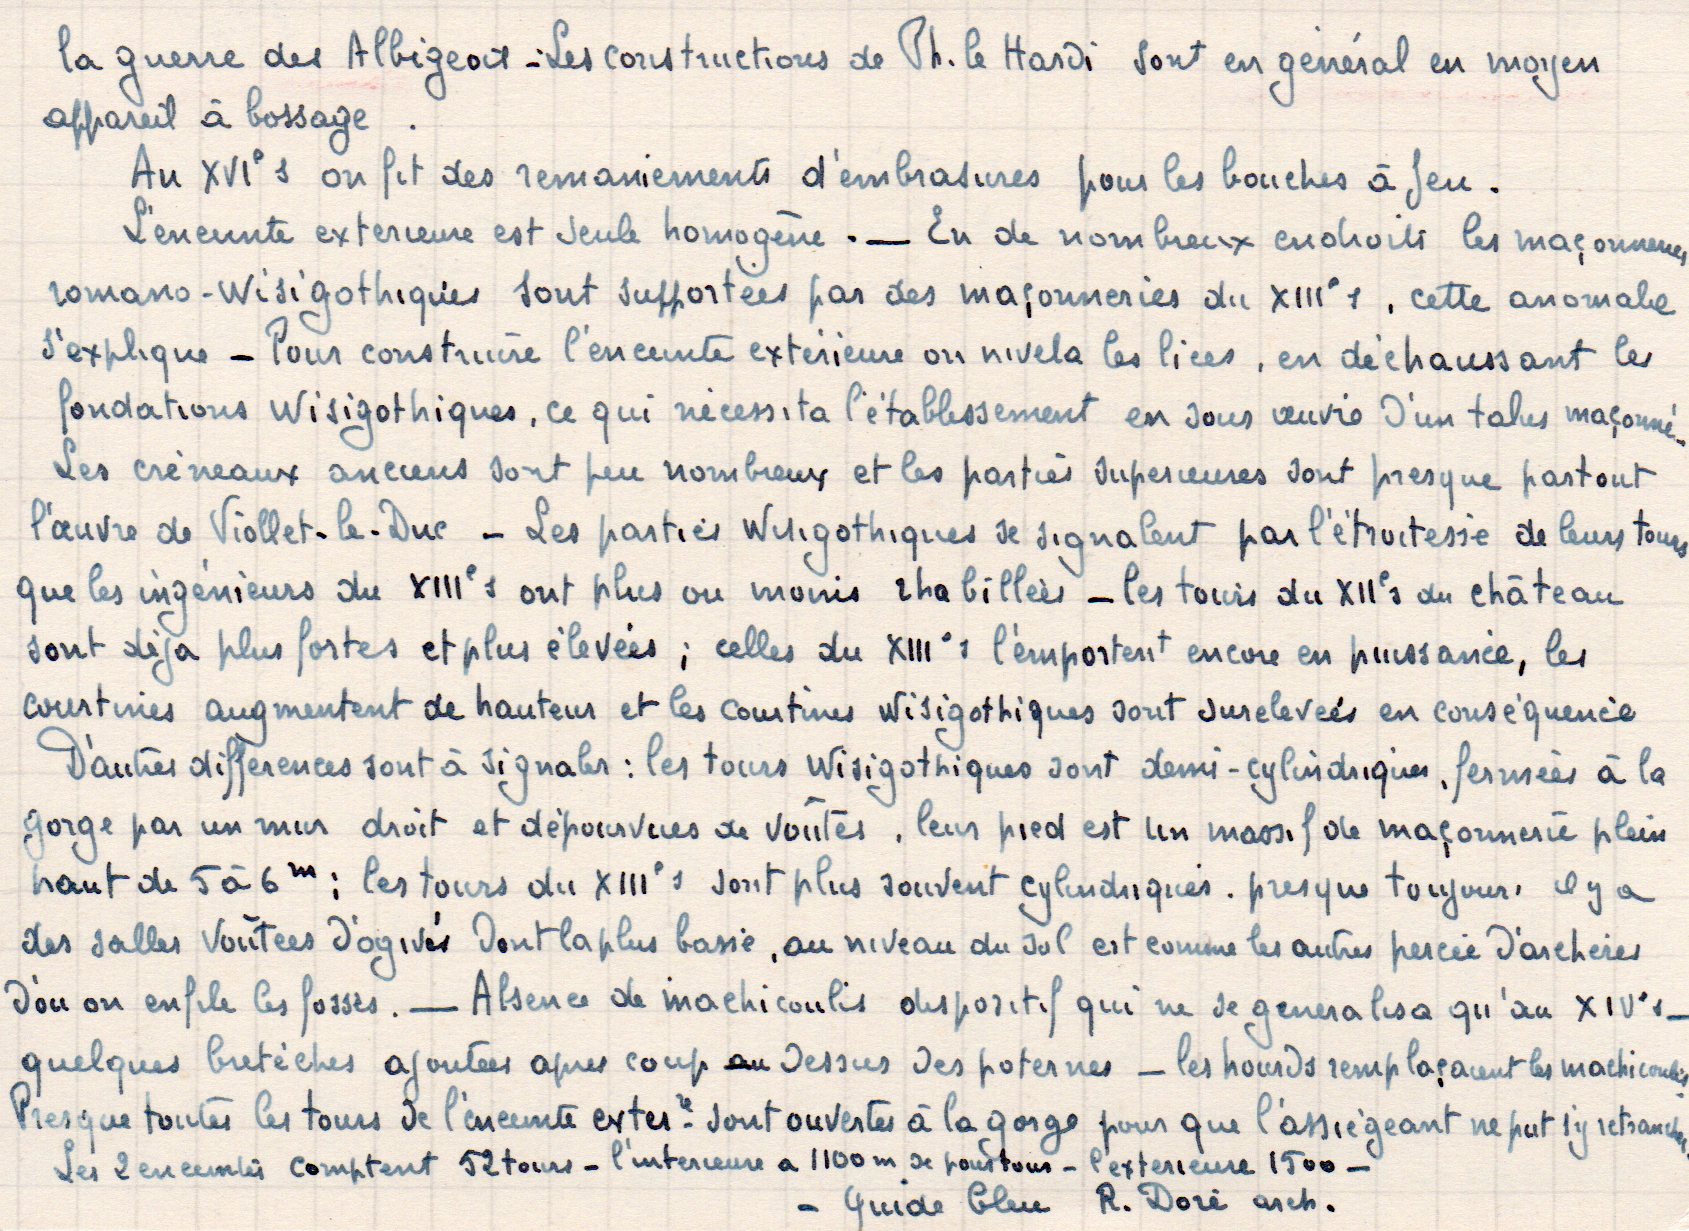 la guerre des Albigeois - Les constructions de Ph. le Hardi sont en général en moyen
appareil à bossage .
Au XVIe s on fit des remaniements d'embrasures pour les bouches à feu .
L'enceinte exterieure est seule homogène . — En de nombreux endroits les maçonneries
romano - Wisigothiques sont supportées par des maçonneries du XIIIe s , cette anomalie
s'explique - Pour construire l'enceinte extérieure on nivela les lices , en déchaussant les
fondations Wisigothiques , ce qui nécessita l'établissement en sous œuvre d'un talus maçonné -
Les créneaux anciens sont peu nombreux et les parties superieures sont presque partout
l'œuvre de Viollet-le-Duc - Les parties Wisigothiques se signalent par l'étroitesse de leurs tours
que les ingénieurs du XIIIe s ont plus ou moins rhabillées - les tours du XIIe s du château
sont déja plus fortes et plus élevées ; celles du XIIIe s l'emportent encore en puissance, les
courtines augmentent de hauteur et les courtines Wisigothiques sont surelevées en conséquence
D'autres differences sont à signaler : les tours Wisigothiques sont demi-cylindriques , fermées à la
gorge par un mur droit et dépourvues de voûtes , leur pied est un massif de maçonnerie plein
haut de 5 à 6 m ; les tours du XIIIe s sont plus souvent cylindriques . presque toujours il y a
des salles voûtées d'ogives dont la plus basse , au niveau du sol est comme les autres percée d'archères
d'ou on enfile les fossés . — Absence de machicoulis dispositif qui ne se generalisa qu'au XIVe s -
quelques bretêches ajoutées apres coup au dessus des poternes - les hourds remplaçaient les machicoulis
Presque toutes les tours de l'enceinte exter re - sont ouvertes à la gorge pour que l'assiégeant ne put s'y retrancher
Les 2 enceintes comptent 52 tours - l'interieure a 1100 m de pourtour - l'exterieure 1500 -
- Guide bleu R. Doré arch .